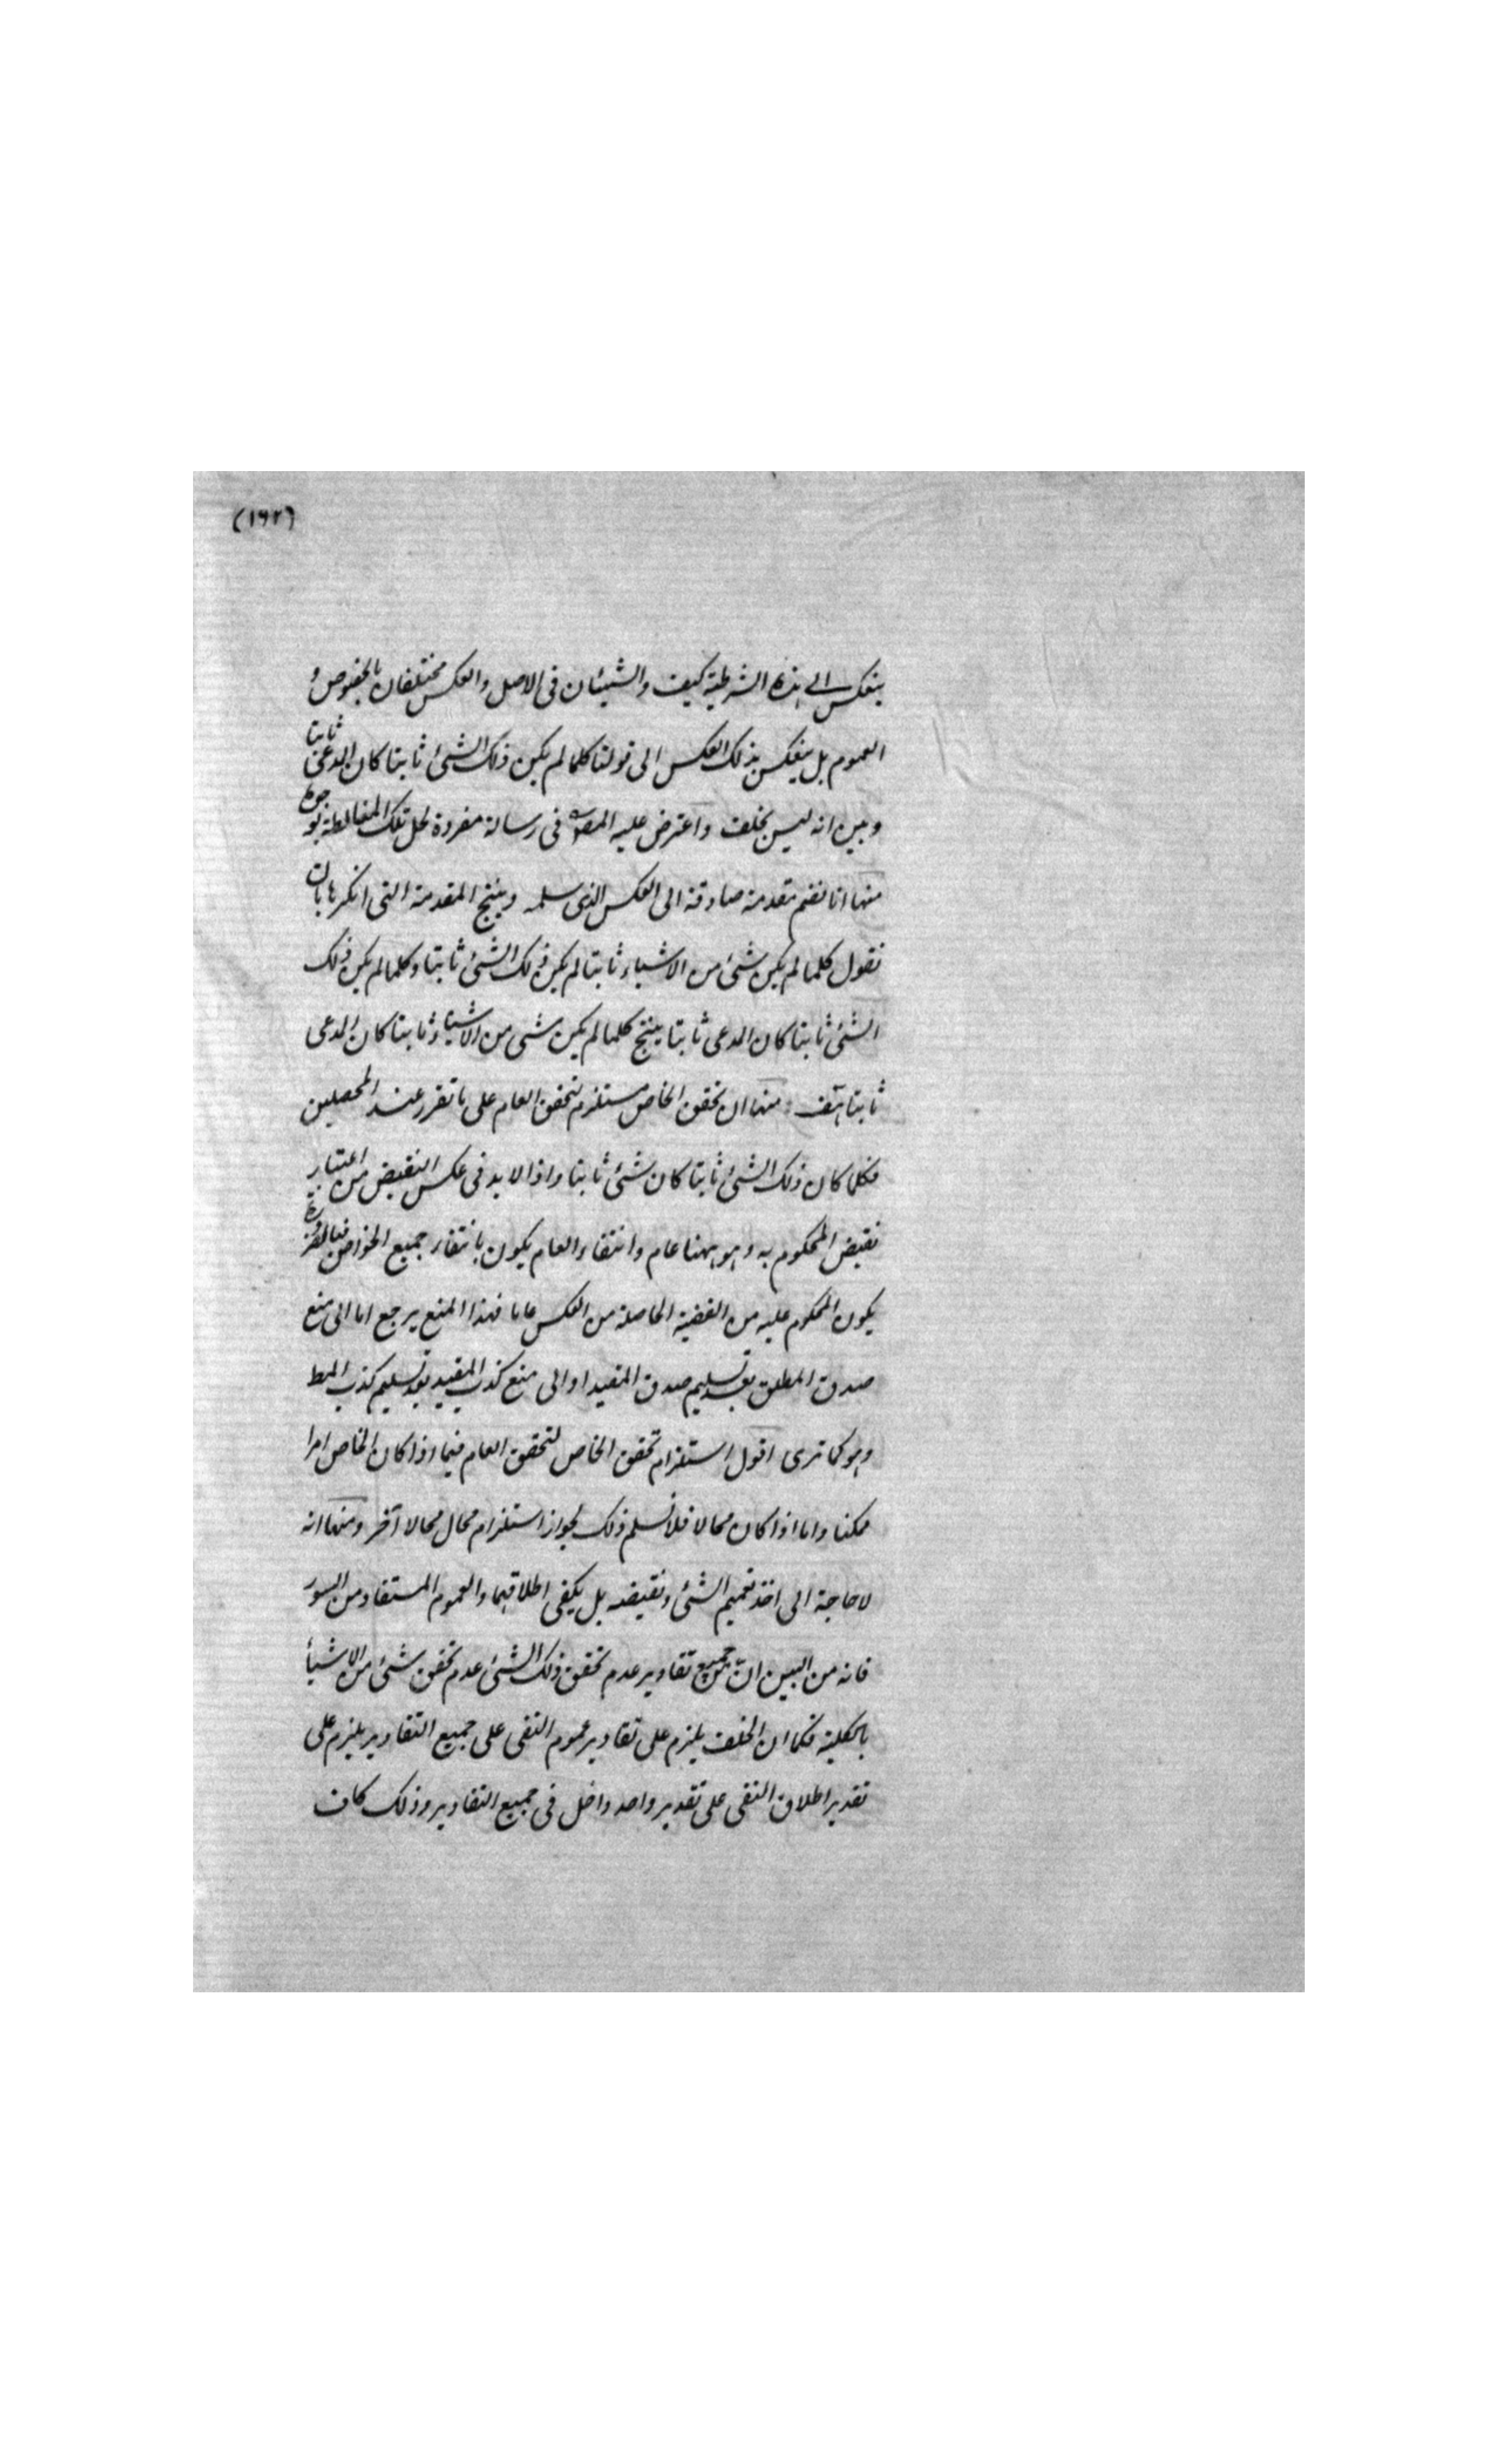 (١٦٢)
ينعكس الى هذه الشرطية كيف والشيئان فى الاصل والعكس مختلفان بالخصوص و
العموم بل ينعكس بذلك العكس الى قولنا كلما لم يكن ذلك الشئ ثابتا كان المدعى ثابتا
وبين انه ليس بخلف واعترض عليه المصنف فى رسالة مفردة لحل تلك المغالطة بوجوه
منها انا نضم مقدمة صادقة الى العكس الذى سلمه وينتج المقدمة التى انكرها بان
نقول كلما لم يكن شئ من الاشياء ثابتا لم يكن ذلك الشئ ثابتا وكلما لم يكن ذلك
الشئ ثابتا كان المدعى ثابتا ينتج كلما لم يكن شئ من الاشياء ثابتا كان المدعى
ثابتا هف ومنها ان تحقق الخاص مستلزم لتحقق العام على ما تقرر عند المحصلين
فكلما كان ذلك الشئ ثابتا كان شئ ثابتا واذا لا بد فى عكس النقيض من اعتبار
نقيض المحكوم به وهو ههنا عام وانتفاء العام يكون بانتفاء جميع الخواص فبالضرورة
يكون المحكوم عليه من القضية الحاصلة من العكس عاما فهذا المنع يرجع اما الى منع
صدق المطلق بعد تسليم صدق المقيد او الى منع كذب المقيد بعد تسليم كذب المط
وهو كما ترى اقول استلزام تحقق الخاص لتحقق العام فيما اذا كان الخاص امرا
ممكنا واما اذا كان محالا فلا نسلم ذلك لجواز استلزام محال محالا آخر ومنها انه
لا حاجة الى اخذ تعميم الشئ ونقيضه بل يكفى اطلاقهما والعموم المستفاد من السور
فانه من البين ان من جميع تقادير عدم تحقق ذلك الشئ عدم تحقق شئ من الاشيأ
بالكلية فكما ان الخلف يلزم على تقادير عموم النفى على جميع التقادير يلزم على
تقدير اطلاق النفى على تقدير واحد داخل فى جميع التقادير وذلك كاف